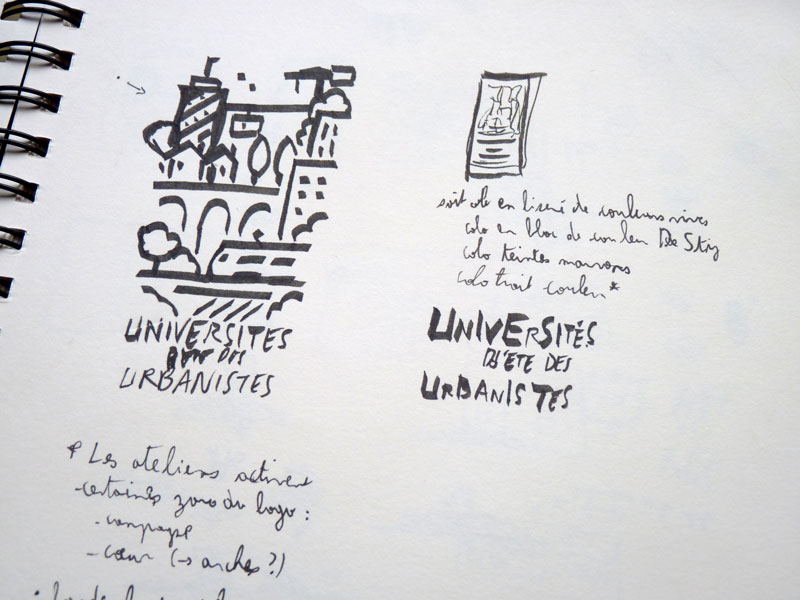 UNIVERSITES
DES
URBANISTES
soit colo en liseré de couleurs vives
colo en bloc de couleur De Stij
colo teintes marrons
colo trait couleur *
UNIVERSITÉS
D'ÉTÉ DES
URBANISTES
* Les ateliers activent
- certaines zones du logo :
- campagne
- cœur (→ arches ?)